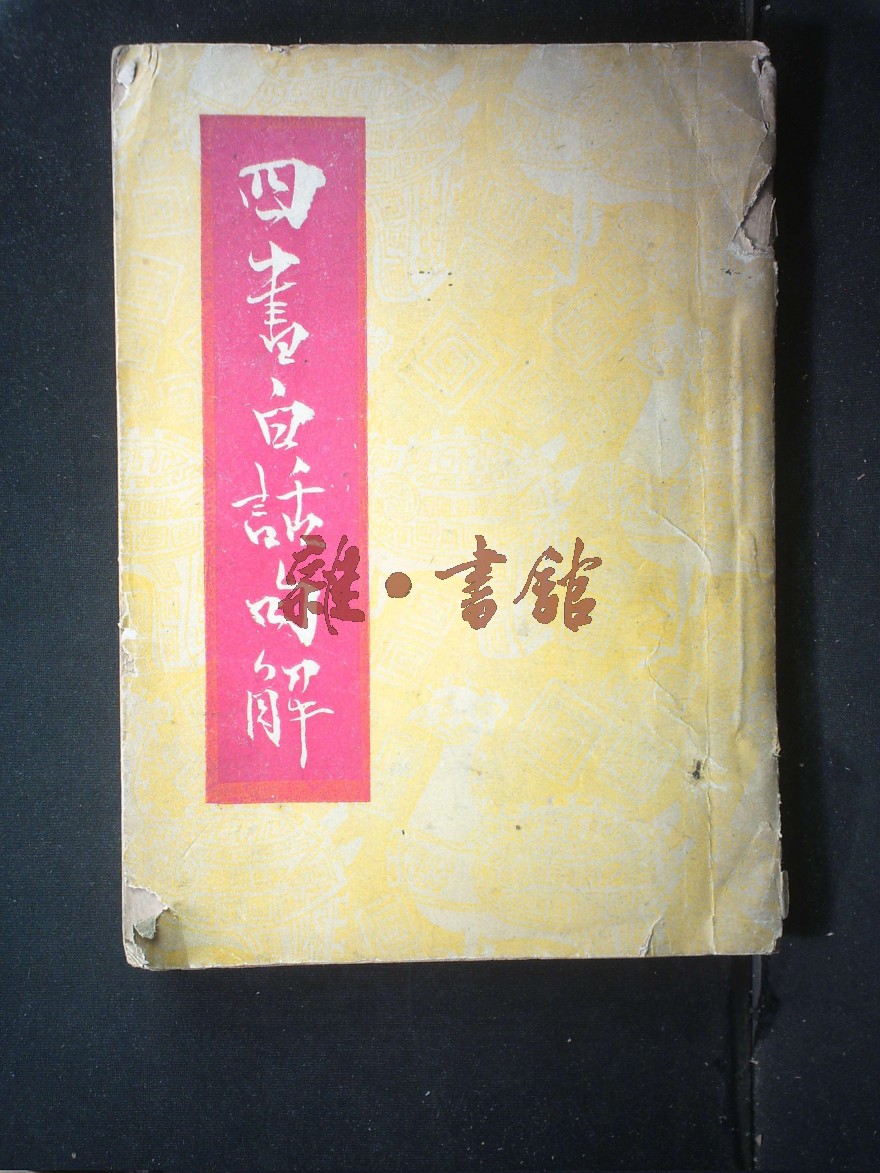 四書白話句解
雜·書館